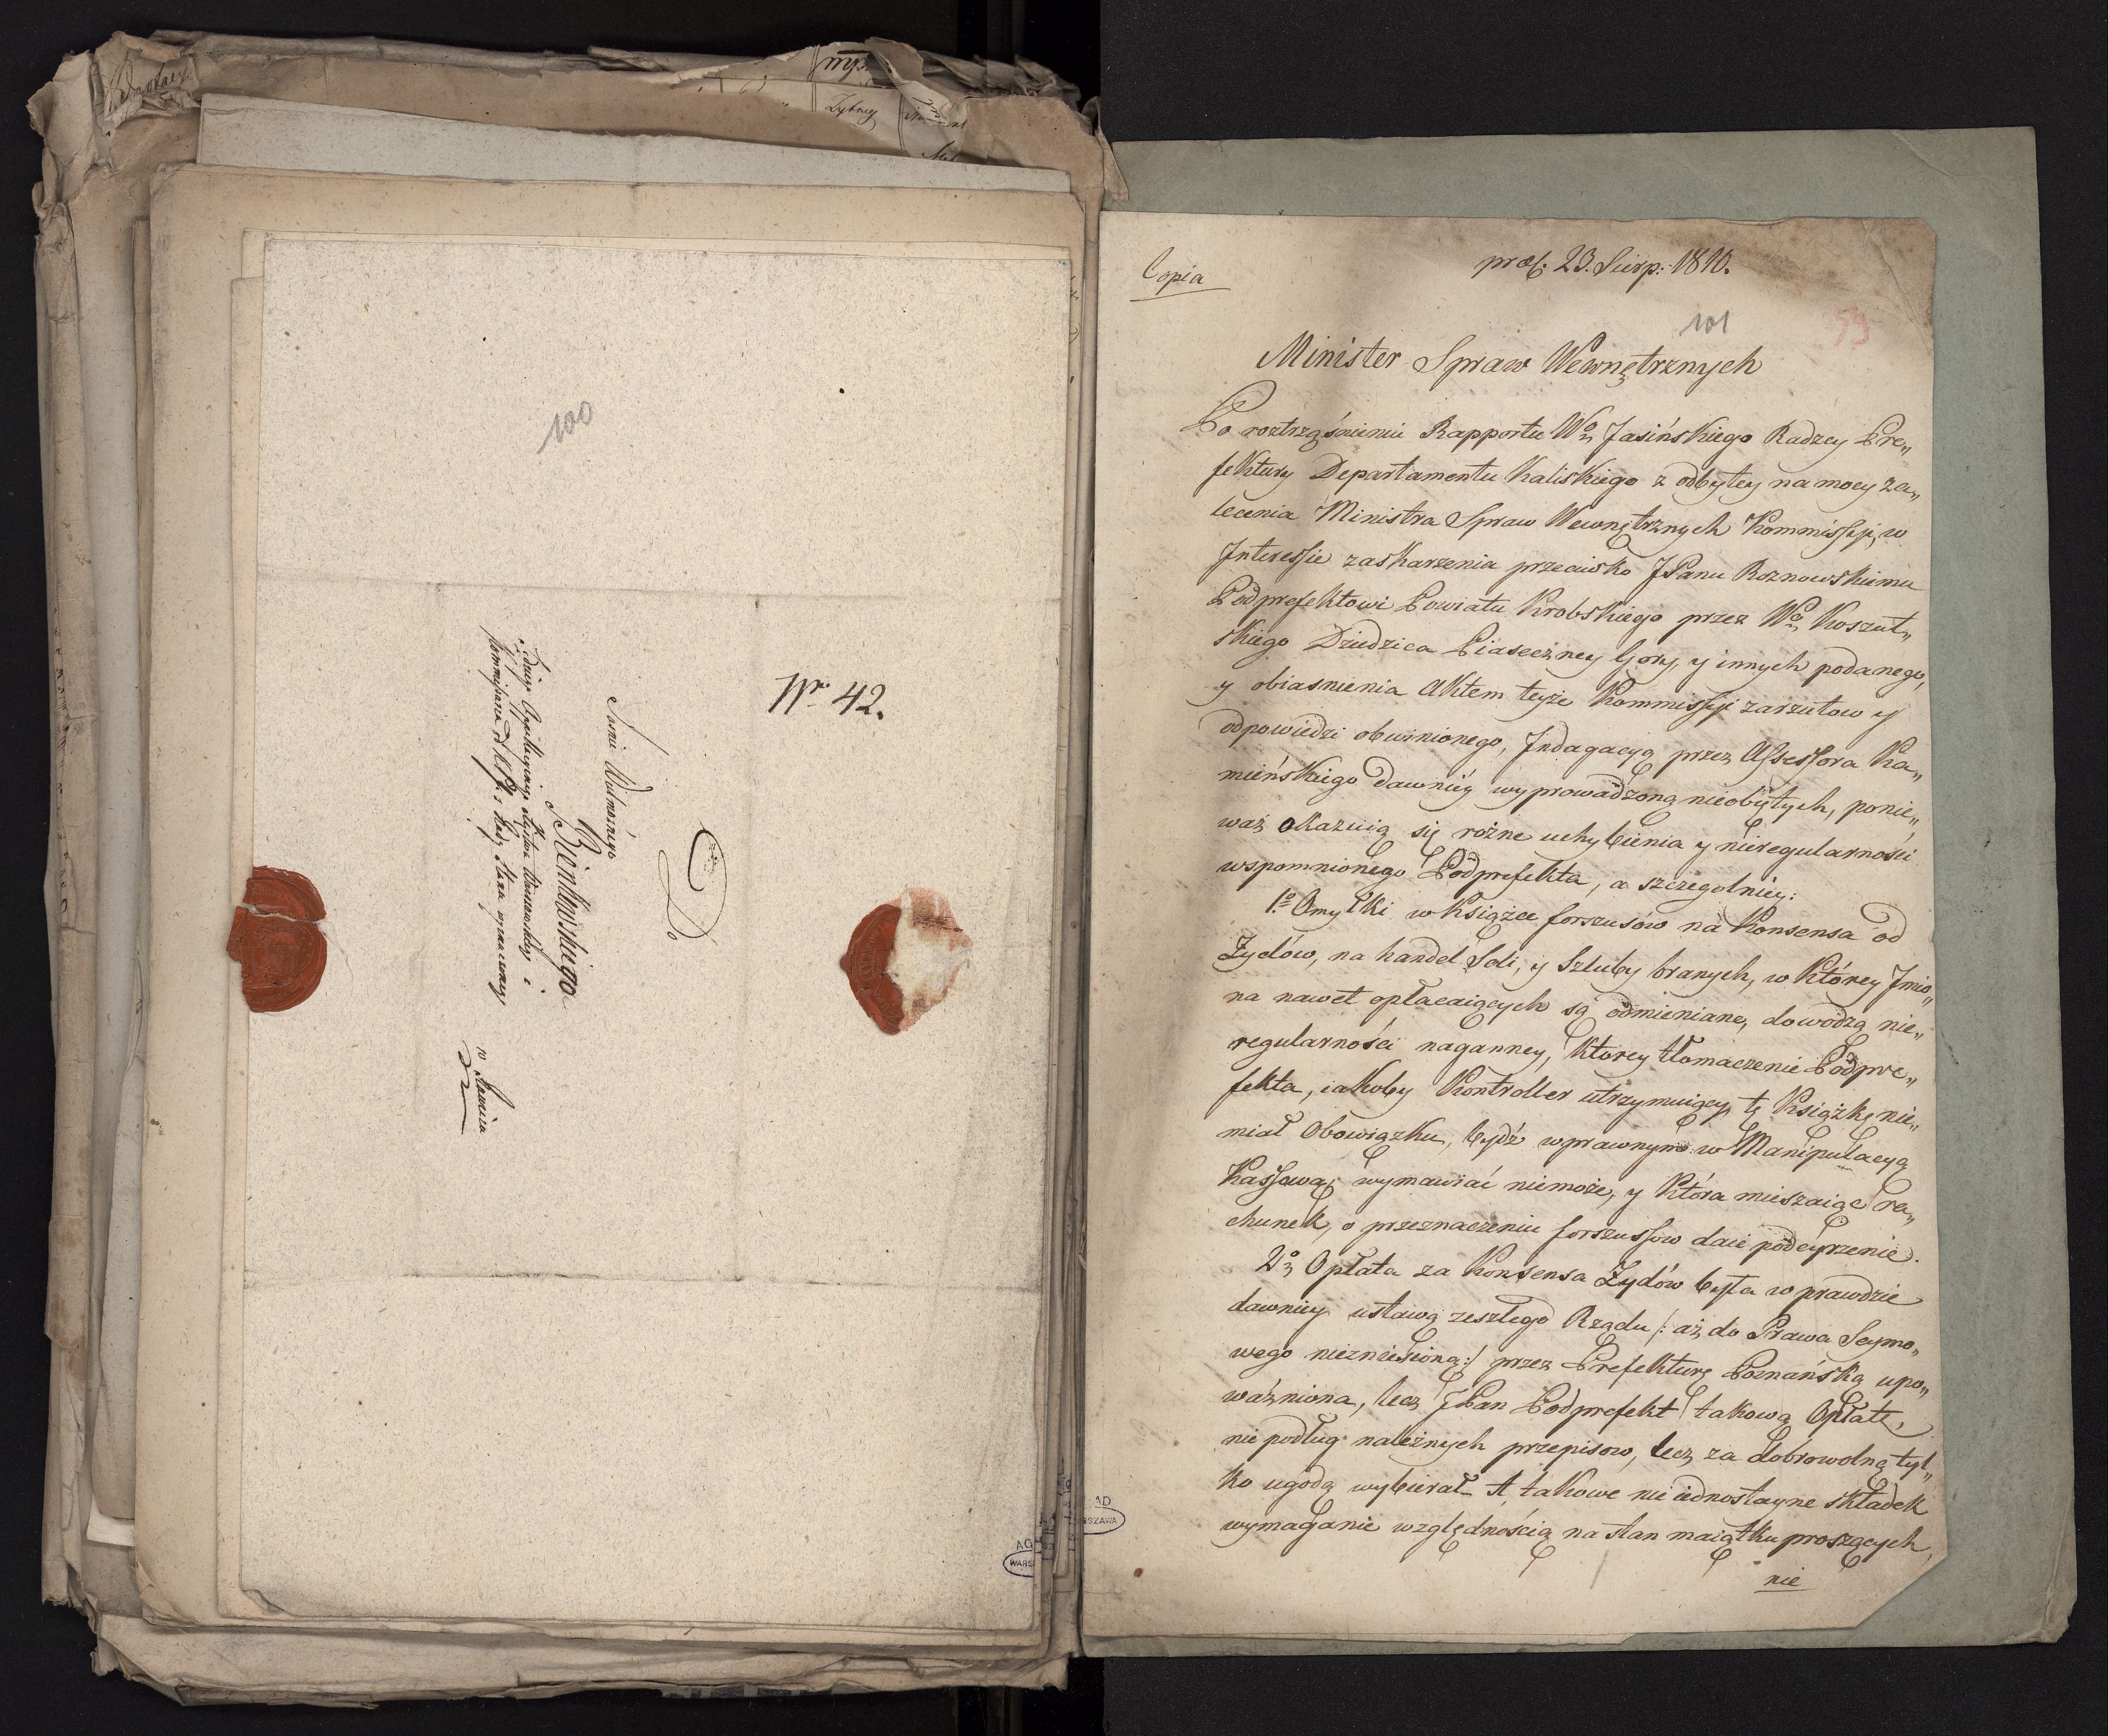 100
Nro 42.
Do
Jaśnie Wielmożnego
Bieńkowskiego
Sędziego Appellacyinego Xięstwa Warszawskiego i
Kommissarza
w Rawiczu
Copia
præs: 23. Sierp: 1810.
101
59
Minister Spraw Wewnętrznych
Po roztrząśnieniu Rapportu Wo Jasińskiego Radzcy Pre„
fektury Departamentu Kaliskiego z odbytey na mocy za„
lecenia Ministra Spraw Wewnętrznych Kommissyi, w
Interessie zaskarżenia przeciwko JPanu Roznowskiemu
Podprefektowi Powiatu Krobskiego przez Wo Koszut„
skiego Dziedzica Piaseczney Gory, y innych podanego,
y obiasnienia Aktem teyże Kommissyi zarzutow y
odpowiedzi obwinionego, Indagacyą przez Assessora Ka„
mieńskiego dawniey wyprowadzoną nieobiętych, ponie„
waż okazuią się rożne uchybienia y nieregularności
wspomnionego Podprefekta, a szczegolniey:
1o Omyłki w Książce forszusów na Konsensa od
Żydów, na handel Soli, y Szluby branych, w którey Jmio„
na nawet opłacaiących są odmieniane, dowodzą nie„
regularności naganney, ktorey tłomaczenie Podpre„
fekta, iakoby Kontroller utrzymuiący tę Książkę nie„
miał Obowiązku, bydź wprawnym w Manipulacyą
Kassową; wymawiać niemoże, y która mieszaiąc ra„
chunek, o przeznaczeniu forszussow daie podeyrzenie.
2o Opłata za Konsensa Żydów była w prawdzie
dawniey ustawą zeszłego Rządu /: aż do Prawa Seymo„
wego niezniesioną :/ przez Prefekturę Poznańską upo„
ważniona, lecz JPan Podprefekt takową Opłatę,
nie podług należnych przepisow, lecz za dobrowolną tyl„
ko ugodą wybierał. A takowe nie iednostayne składek
wymaganie względnością na stan maiątku proszących,
nie